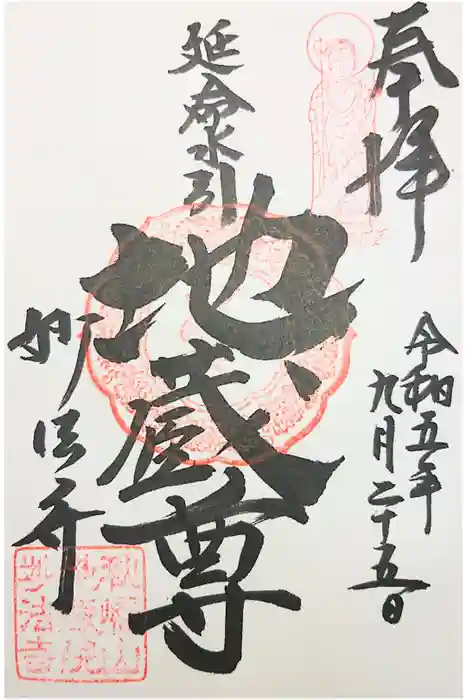 奉拝
令和五年
九月二十五日
延命水引
地蔵尊
妙法寺